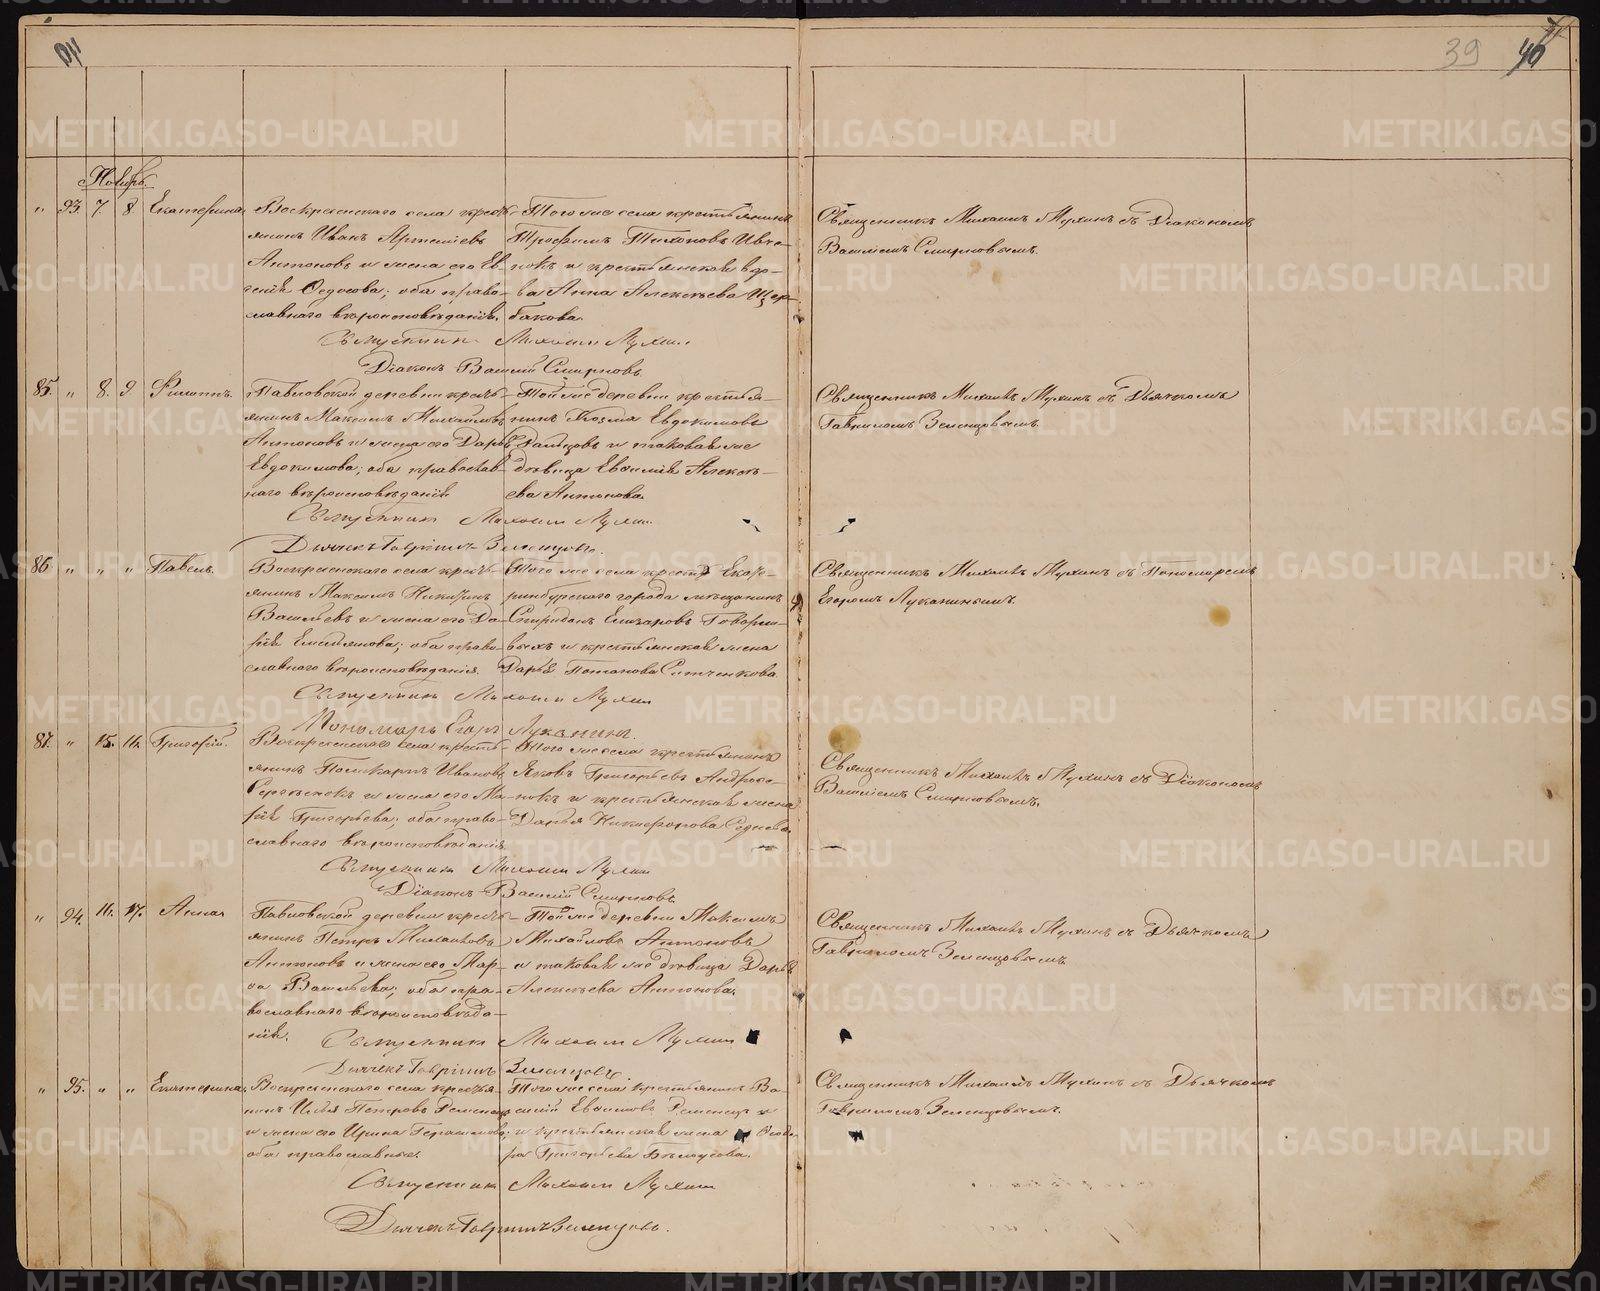 39 40
Ноябрь.
„ 93. 7. 8. Екатерина
Воскресенскаго села кресть-
янинъ Иванъ Артемiевъ
Антоновъ и жена его Ев-
генiя Федосова; оба право-
славнаго вѣроисповѣданiя.
Того же села крестьянинъ
Трофимъ Тихоновъ Ивче-
нокъ и крестьянская вдо-
ва Анна Алексѣева Щер-
бакова.
Священникъ Михаилъ Мухинъ съ Дiакономъ
Василiемъ Смирновымъ.
Священникъ Михаилъ Мухинъ
Дiаконъ Василiй Смирновъ
85. „ 8. 9 Филиппъ.
Павловской деревни кресть-
янинъ Максимъ Михайловъ
Антоновъ и жена его Дарья
Евдокимова; оба православ-
наго вѣроисповѣданiя
Той же деревни крестья-
нинъ Козма Евдокимовъ
и таковая же
дѣвица Евфимiя Алексѣ-
ева Антонова.
Священникъ Михаилъ Мухинъ съ Дьячкомъ
Гаврiиломъ Зеленцовымъ.
Священникъ Михаилъ Мухинъ
Дьячекъ Гаврiилъ Зеленцовъ.
86. „ „ „ Павелъ.
Воскресенскаго села кресть-
янинъ Максимъ Никитинъ
Васильевъ и жена его Да-
рiя Емельянова; оба право-
славнаго вѣроисповѣданiя.
Того же села крест. Екате-
ринбургскаго города мѣщанинъ
Спиридонъ Елизаровъ Говорли-
выхъ и крестьянская жена
Дарья Потапова Ситченкова
Священникъ Михаилъ Мухинъ съ Пономаремъ
Егоромъ Луканинымъ.
Священникъ Михаилъ Мухинъ
Пономарь Егоръ Луканинъ.
87. „ 15. 16. Григорiй.
Воскресенскаго села кресть-
янинъ Поликарпъ Ивановъ
Сергѣенокъ и жена его Ма-
рiя Григорьева; оба право-
славнаго вѣроисповѣданiя
Того же села крестьянинъ
Яковъ Григорьевъ Андрюсе-
нокъ и крестьянская жена
Дарья Никифорова Седнева.
Священникъ Михаилъ Мухинъ съ Дiакономъ
Василiемъ Смирновымъ.
Священникъ Михаилъ Мухинъ
Дiаконъ Василiй Смирновъ
„ 94. 16. 17. Анна
Павловской деревни кресть-
янинъ Петръ Михайловъ
Антоновъ и жена его Мар-
фа Васильева; оба пра-
вославнаго вѣроисповѣда-
нiя.
Той же деревни Максимъ
Михайловъ Антоновъ
и таковая же дѣвица Дарья
Алексѣева Антонова.
Священникъ Михаилъ Мухинъ съ Дьячкомъ
Гаврiиломъ Зеленцовымъ
Священникъ Михаилъ Мухинъ
Дьячекъ Гаврiилъ Зеленцовъ.
„ 95. „ „ Екатерина.
Воскресенскаго села крестья-
нинъ Илья Петровъ Ременецъ
и жена его Ирина Герасимова;
оба православные.
Того же села крестьянинъ Ва-
силiй Евфимовъ Ременецъ и
и крестьянская жена Феодо-
ра Григорьева Бѣлоусова.
Священникъ Михаилъ Мухинъ съ Дьячкомъ
Гаврiиломъ Зеленцовымъ.
Священникъ Михаилъ Мухинъ
Дьячекъ Гаврiилъ Зеленцовъ.
METRIKI.GASO-URAL.RU